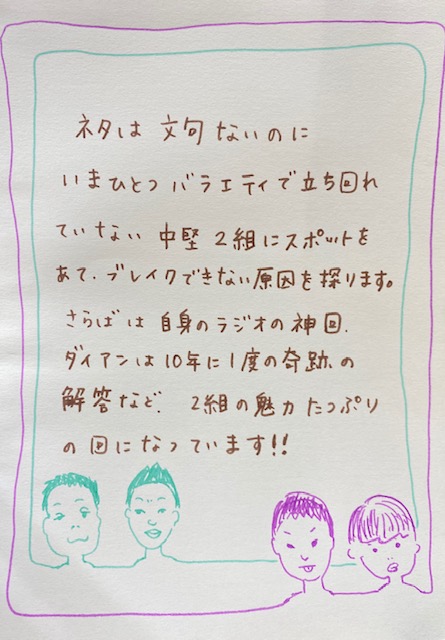 ネタは文句ないのに
いまひとつバラエティで立ち回れ
ていない中堅2組にスポットを
あて、ブレイクできない原因を探ります。
さらばは自身のラジオの神回、
ダイアンは10年に1度の奇跡の
解答など、2組の魅力たっぷり
の回になっています!!